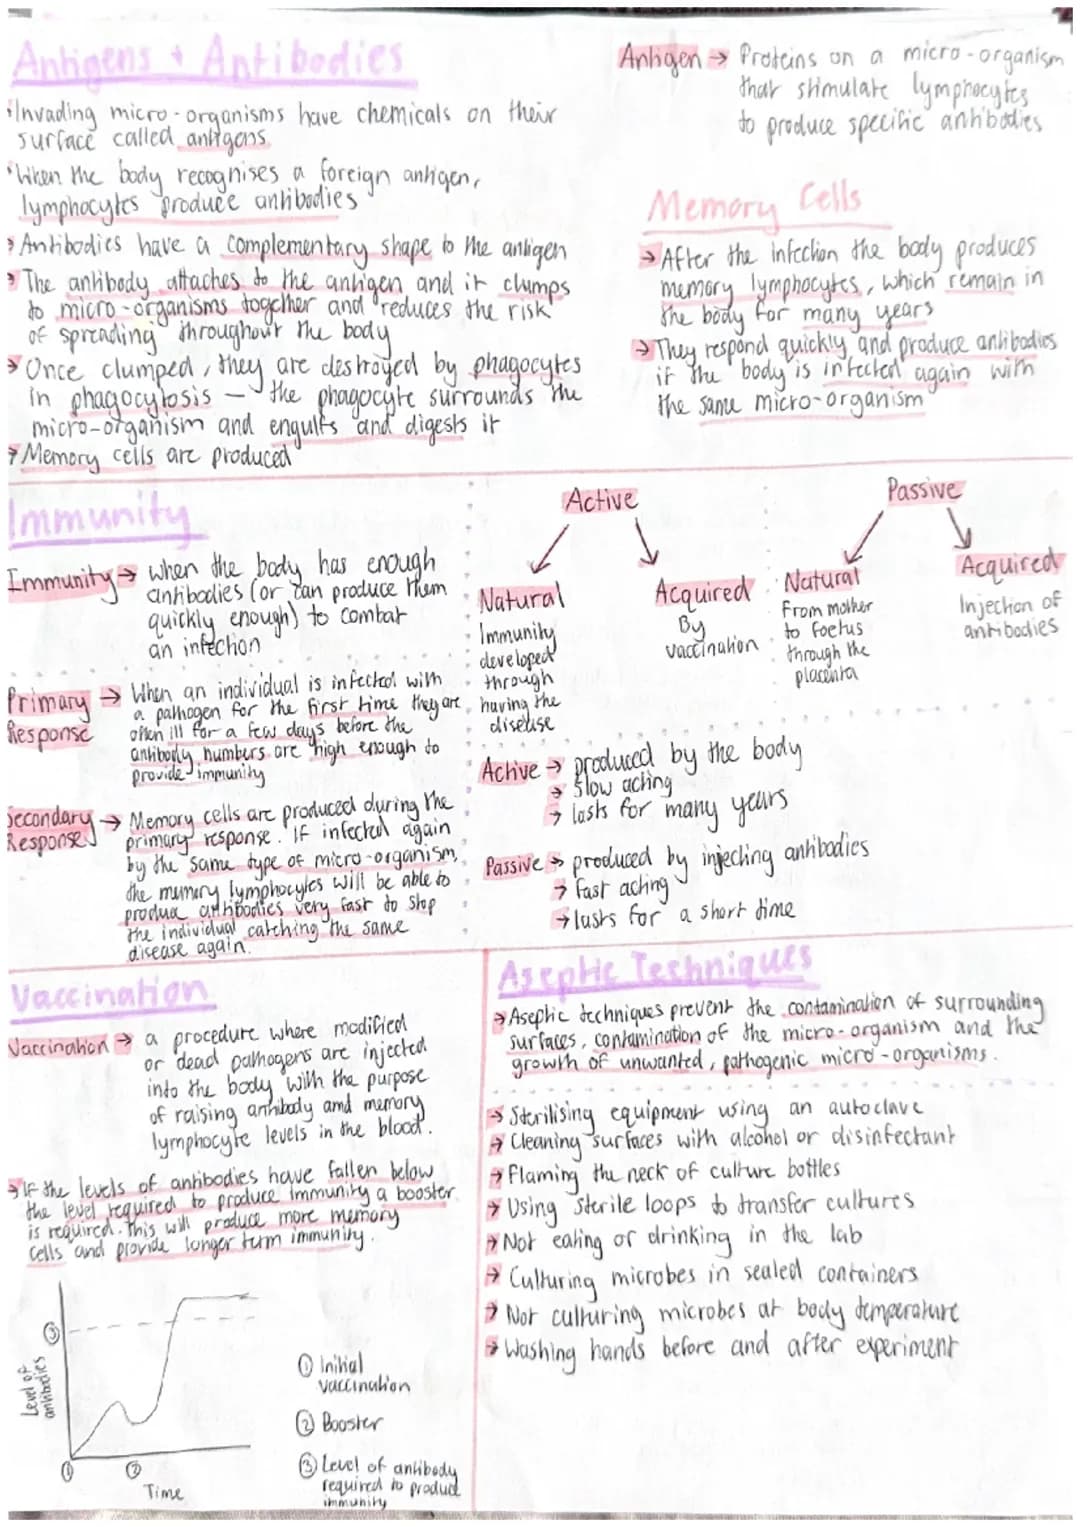 Antigens + Antibodies
Invading micro-organisms have chemicals on their
surface called antigens.
When the body recognises a foreign antigen,
lymphocytes produce antibodies
Antibodies have a complementary shape to the antigen
The antibody attaches to the antigen and it clumps
to micro-organisms together and reduces the risk
of spreading throughout the body
Once clumped, they are destroyed by phagocytes
in phagocytosis – the phagocyte surrounds the
micro-organism and engulfs and digests it
→ Memory cells are produced
Antigen → Proteins on a micro-organism
that stimulate lymphocytes
to produce specific antibodies
Memory Cells
→ After the infection the body produces
memory lymphocytes, which remain in
the body for many years
→ They respond quickly and produce antibodies
if the body is infected again with
the same micro-organism
Immunity
Immunity → when the body has enough
antibodies (or can produce them
quickly enough) to combat
an infection
Primary Response → When an individual is infected with
a pathogen for the first time they are
often ill for a few days before the
antibody numbers are high enough to
provide immunity
Secondary Response → Memory cells are produced during the
primary response. If infected again
by the same type of micro-organism,
the memory lymphocytes will be able to
produce antibodies very fast to stop
the individual catching the same
disease again.
Active
Natural
Immunity
developed
through
having the
disease
Acquired
By
vaccination
Passive
Natural
From mother
to foetus
through the
placenta
Acquired
Injection of
antibodies
Active → produced by the body
→ slow acting
→ lasts for many years
Passive → produced by injecting antibodies
→ fast acting
→ lasts for a short time
Vaccination
Vaccination → a procedure where modified
or dead pathogens are injected
into the body with the purpose
of raising antibody and memory
lymphocyte levels in the blood.
→ If the levels of antibodies have fallen below
the level required to produce immunity a booster
is required. This will produce more memory
cells and provide longer term immunity.
Level of
antibodies
③
①
②
Time
① Initial
vaccination
② Booster
③ Level of antibody
required to produce
immunity
Aseptic Techniques
→ Aseptic techniques prevent the contamination of surrounding
surfaces, contamination of the micro-organism and the
growth of unwanted, pathogenic micro-organisms.
→ Sterilising equipment using an autoclave
→ Cleaning surfaces with alcohol or disinfectant
→ Flaming the neck of culture bottles
→ Using sterile loops to transfer cultures
→ Not eating or drinking in the lab
→ Culturing microbes in sealed containers
→ Not culturing microbes at body temperature
→ Washing hands before and after experiment